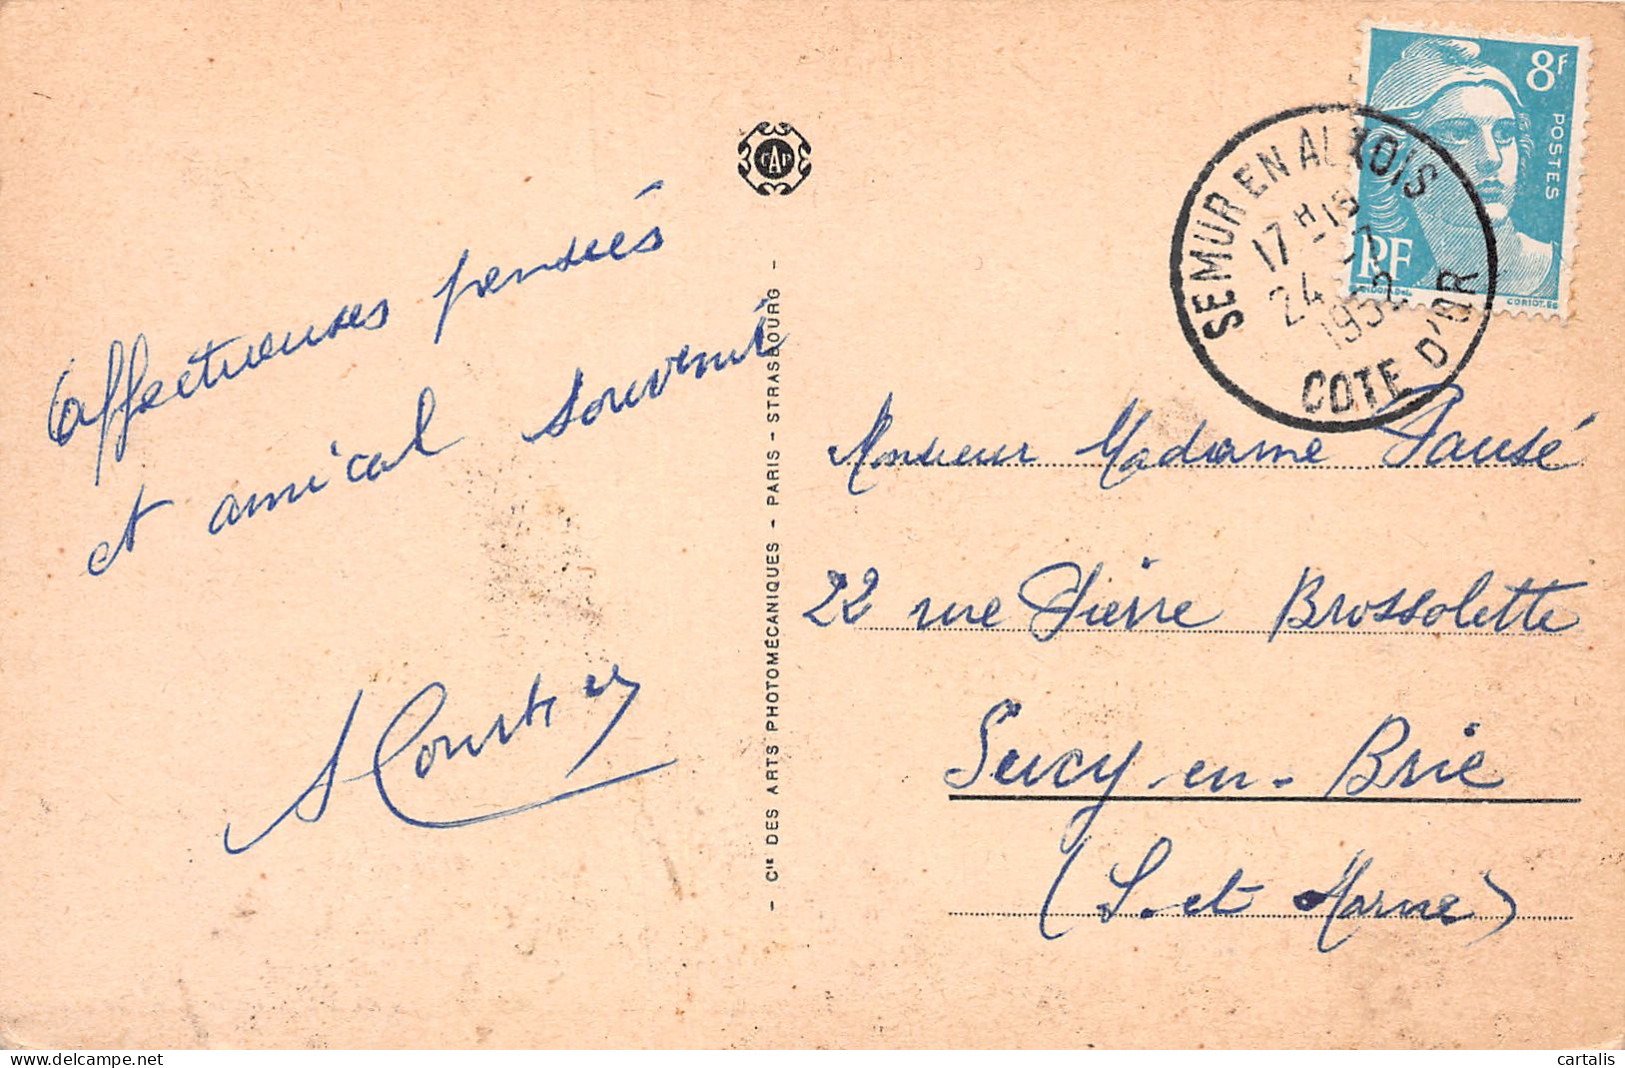 Affectueuses pensées
et amical souvenir
CAP
- Cie DES ARTS PHOTOMÉCANIQUES - PARIS - STRASBOURG -
8F
POSTES
RF
SEMUR EN AUXOIS
17 H 15
24
1952
COTE D'OR
Monsieur Madame Pausé
22 rue Pierre Brossolette
Sucy-en-Brie
(S.et Marne)
cartalis